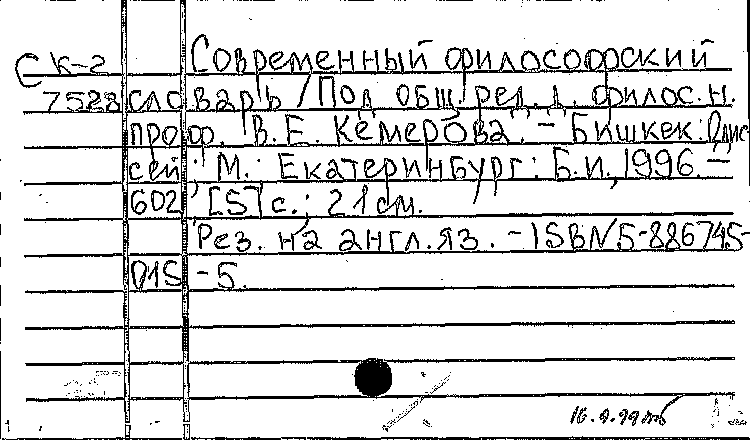 С к-2 Современный философский
7528 словарь / Под общ. ред. д. филос. н.
проф. В. Е. Кемерова. - Бишкек: Одис
сей; М.: Екатеринбург: Б.и., 1996. -
602, [5] с.; 21 см.
Рез. на англ. яз. - ISBN 5-886745-
015-5.
16.9.99